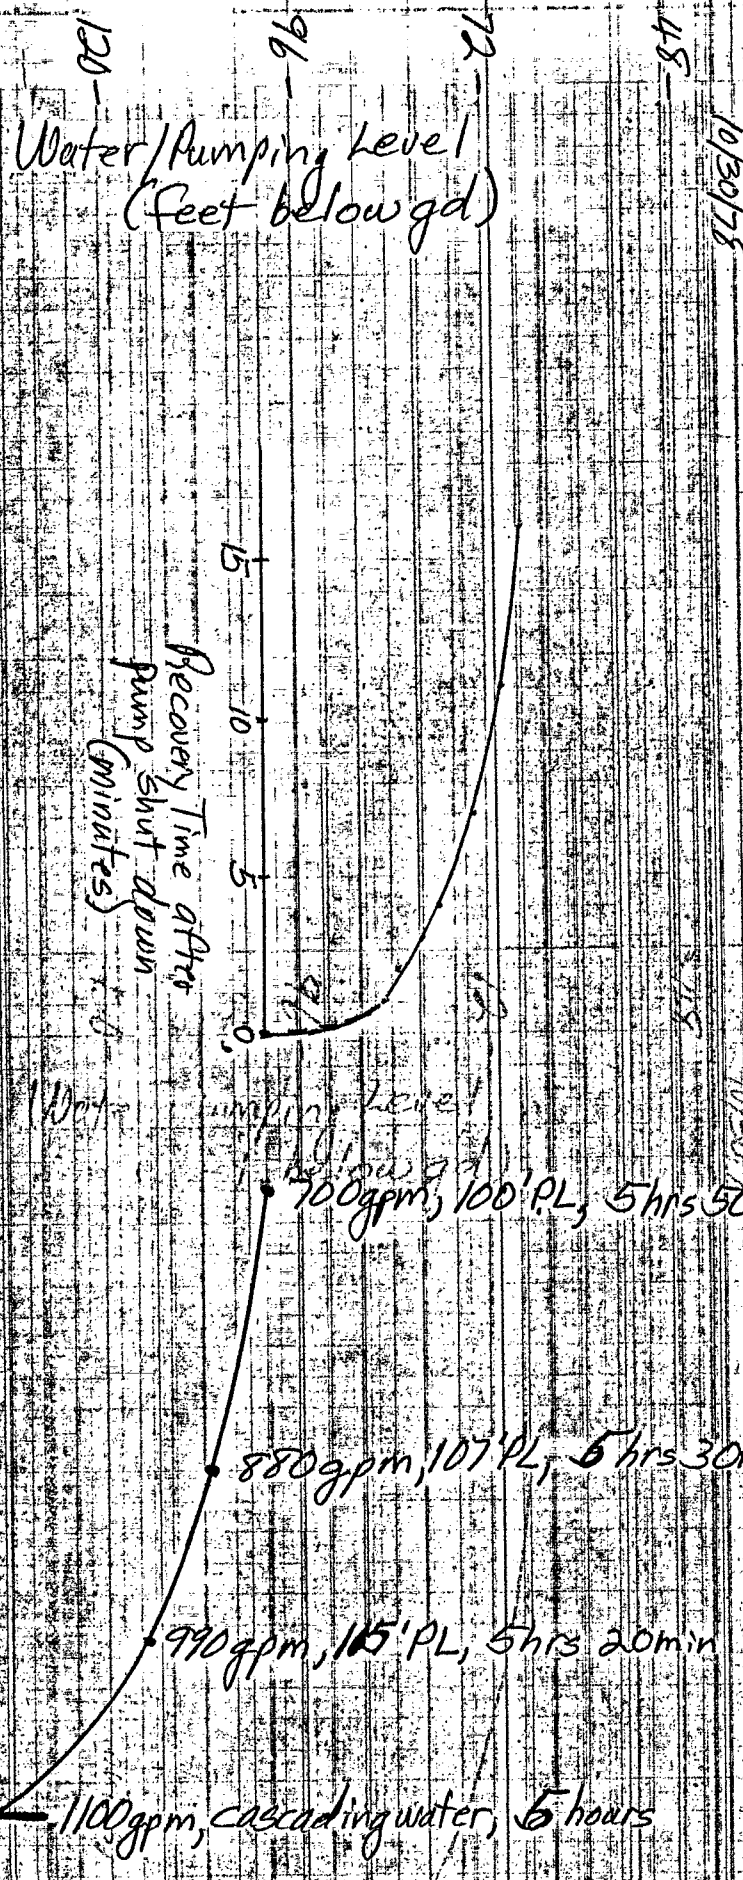 120
96
72
48
10/30/78
Water/Pumping Level
(feet below gd)
15
10
5
0
Recovery Time after
pump shut down
(minutes)
Level
below gd
700gpm, 100' PL, 5hrs 50
880gpm, 107' PL, 5 hrs 30
990gpm, 115' PL, 5hrs 20min
1100gpm, cascading water, 5 hours